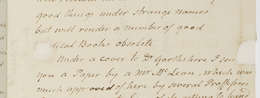 good things under strange names
but will render a number of good
Glad Books obsolete
Under a cover to Dr Garthshore I send
you a Paper by a Mr. McLean, which was
much approved of here by several Professors